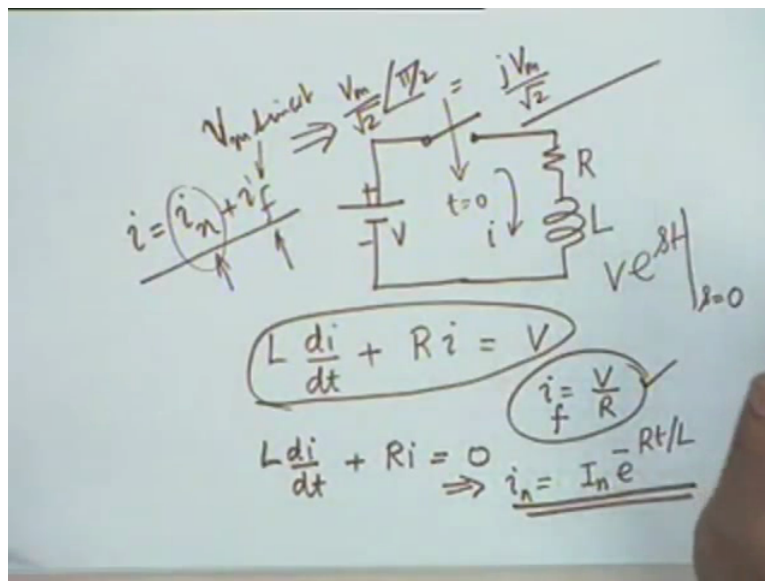 V_m sin ωt ⇒ V_m/√2 ∠π/2 = jV_m/√2
i = i_n + i_f
+
-
V
t=0
i
R
L
Ve^{st}|_{s=0}
L di/dt + Ri = V
i_f = V/R ✓
L di/dt + Ri = 0
⇒ i_n = I_n e^{-Rt/L}